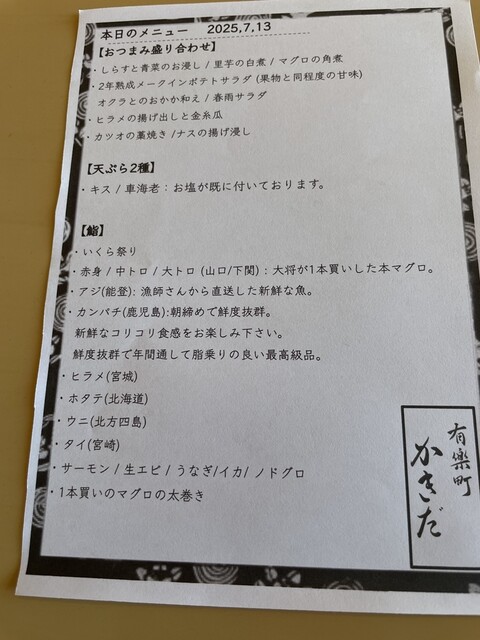 本日のメニュー 2025,7,13
【おつまみ盛り合わせ】
・しらすと青菜のお浸し / 里芋の白煮 / マグロの角煮
・2年熟成メークインポテトサラダ (果物と同程度の甘味)
オクラとのおかか和え / 春雨サラダ
・ヒラメの揚げ出しと金糸瓜
・カツオの藁焼き /ナスの揚げ浸し
【天ぷら2種】
・キス / 車海老：お塩が既に付いております。
【鮨】
・いくら祭り
・赤身 / 中トロ / 大トロ (山口/下関)：大将が1本買いした本マグロ。
・アジ(能登): 漁師さんから直送した新鮮な魚。
・カンパチ(鹿児島):朝締めで鮮度抜群。
新鮮なコリコリ食感をお楽しみ下さい。
鮮度抜群で年間通して脂乗りの良い最高級品。
・ヒラメ(宮城)
・ホタテ(北海道)
・ウニ(北方四島)
・タイ(宮崎)
・サーモン / 生エビ / うなぎ/イカ/ ノドグロ
・1本買いのマグロの太巻き
有楽町
かきだ